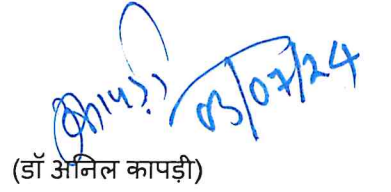 कापड़ी 03/07/24
(डॉ अनिल कापड़ी)